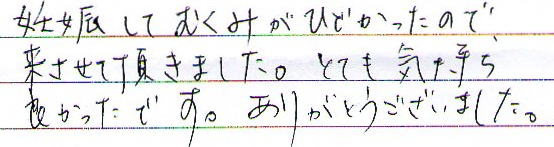 妊娠してむくみがひどかったので
来させて頂きました。とても気持ち
良かったです。ありがとうございました。